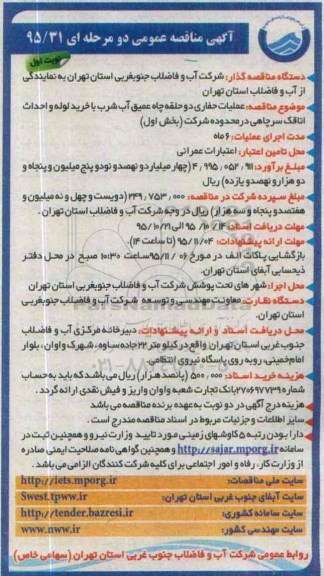 آگهی مناقصه عمومی دو مرحله ای ۹۵/۳۱
نوبت اول
دستگاه مناقصه گذار: شرکت آب و فاضلاب جنوبغربی استان تهران به نمایندگی
از آب و فاضلاب استان تهران
موضوع مناقصه: عملیات حفاری دو حلقه چاه عمیق آب شرب با خرید لوله و احداث
اتاقک سرچاهی در محدوده شرکت (بخش اول)
مدت اجرای عملیات: ۶ ماه
محل تامین اعتبار: اعتبارات عمرانی
مبلغ برآورد: ۴,۹۹۵,۰۵۲,۹۱۱ (چهار میلیارد و نهصد و نود و پنج میلیون و پنجاه و
دو هزار و نهصد و یازده) ریال
مبلغ سپرده شرکت در مناقصه: ۲۴۹,۷۵۳,۰۰۰ (دویست و چهل و نه میلیون و
هفتصد و پنجاه و سه هزار) ریال در وجه شرکت آب و فاضلاب استان تهران.
مهلت دریافت اسناد: ۹۵/۱۰/۱۴ الی ۹۵/۱۰/۲۱
مهلت ارائه پیشنهادات: ۹۵/۱۱/۰۴ (تا ساعت ۱۴)
بازگشایی پاکات الف در مورخ ۹۵/۱۱/۰۶ ساعت ۱۰:۳۰ صبح در محل دفتر
ذیحسابی آبفای استان تهران.
محل اجرا: شهر های تحت پوشش شرکت آب و فاضلاب جنوبغربی استان تهران
دستگاه نظارت: معاونت مهندسی و توسعه شرکت آب و فاضلاب جنوبغربی
استان تهران.
محل دریافت اسناد و ارائه پیشنهادات: دبیرخانه مرکزی آب و فاضلاب
جنوب غربی استان تهران واقع در کیلومتر ۲۳ جاده ساوه، شهرک واوان، بلوار
امام خمینی، روبه روی پاسگاه نیروی انتظامی.
هزینه خرید اسناد: ۵۰۰,۰۰۰ (پانصد هزار) ریال می باشد که باید به حساب
شماره ۲۷۰۶۹۷۷۳۹۰ بانک تجارت شعبه واوان واریز و فیش نقدی ارائه گردد.
هزینه درج آگهی در دو نوبت به عهده برنده مناقصه می باشد
سایر اطلاعات و جزئیات مربوط در اسناد مناقصه مندرج است.
دارا بودن رتبه ۵ کاوشهای زمینی مورد تایید وزارت نیرو و همچنین ثبت در
سامانه http://sajar.mporg.ir و همچنین گواهی نامه صلاحیت ایمنی صادره
از وزارت کار، رفاه و امور اجتماعی برای کلیه شرکت کنندگان الزامی می باشد.
سایت ملی مناقصات: http://iets.mporg.ir
سایت آبفای جنوب غربی استان تهران: Swest.tpww.ir
سایت سامانه کشوری: http://tender.bazresi.ir
سایت مهندسی کشور: www.nww.ir
روابط عمومی شرکت آب و فاضلاب جنوب غربی استان تهران (سهامی خاص)